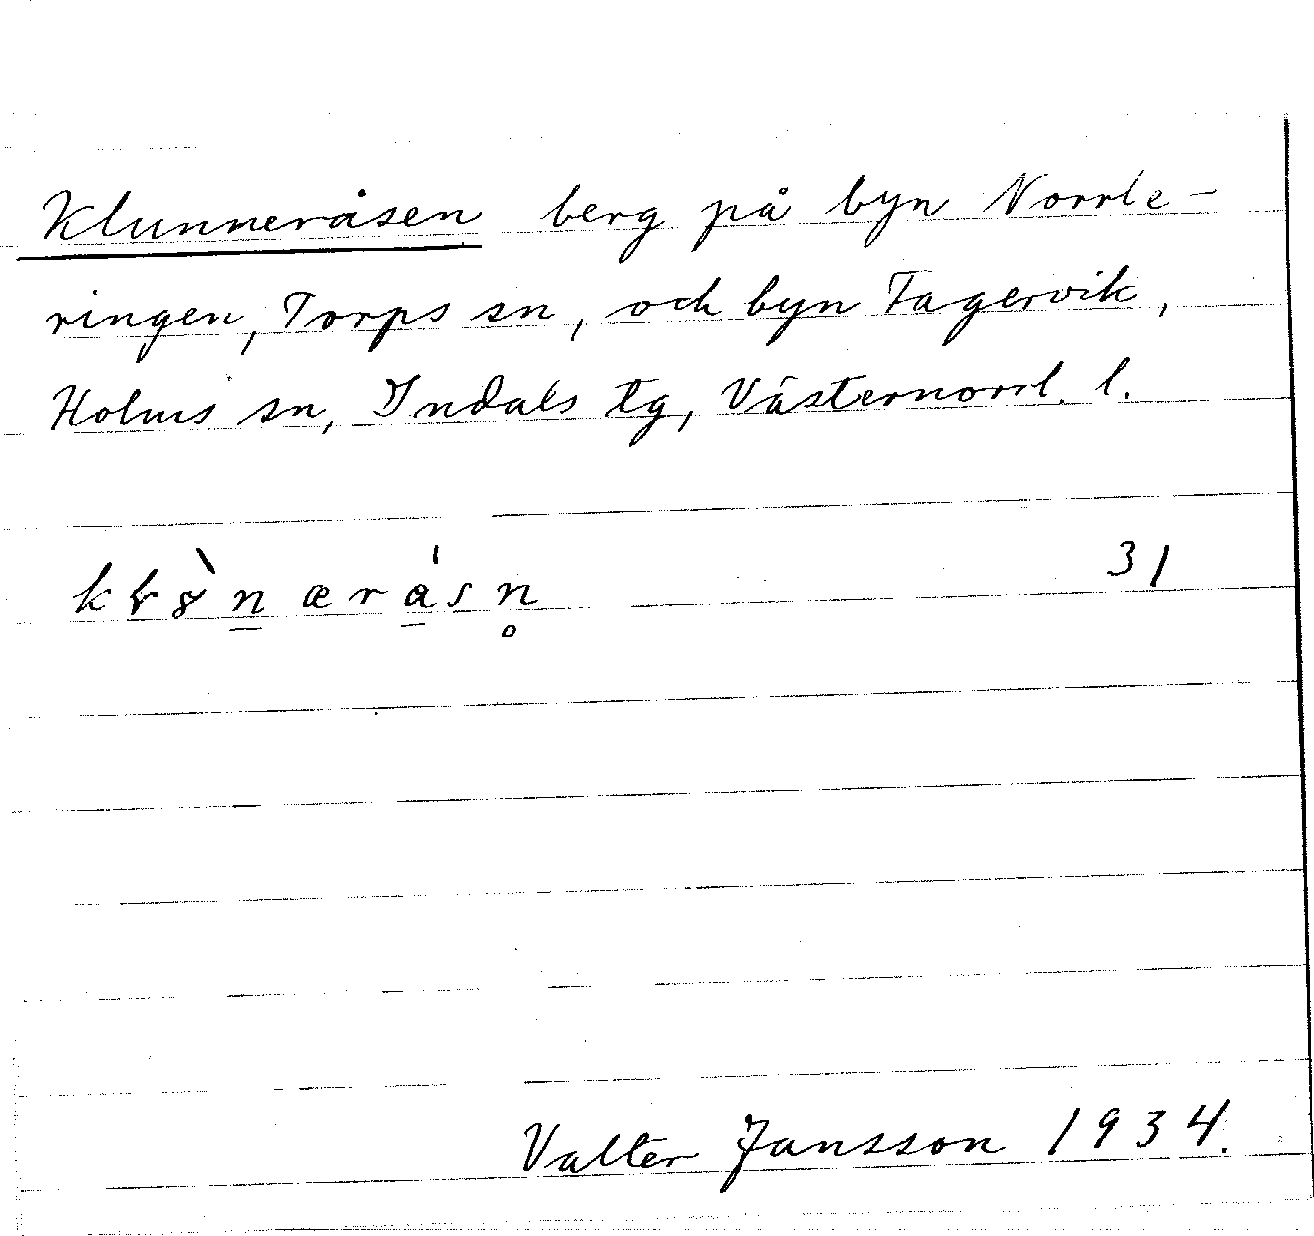 Klunneråsen berg på byn Norrle-
ringen, Torps sn, och byn Fagervik,
Holms sn, Indals tg, Västernorrl. l.
31
Valter Jansson 1934.